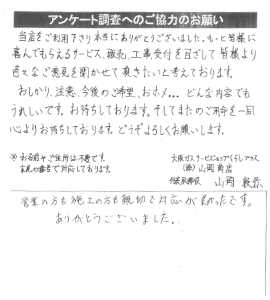 アンケート調査へのご協力のお願い
当店をご利用下さり本当にありがとうございました。もっと皆様に
喜んでもらえるサービス、販売、工事、受付を目ざして皆様より
色々なご意見を聞かせて頂きたいと考えております。
おしかり、注意、今後のご希望、おホメ... どんな内容でも
うれしいです。お待ちしております。そしてまたのご用命を一同
心よりお待ちしております。どうぞよろしくお願いします。
※お名前やご住所は不要です。
大阪ガスサービスショップくらしプラス
(株)山岡商店
代表取締役 山岡
営業の方も施工の方も親切で対応が良かったです。
ありがとうございました。